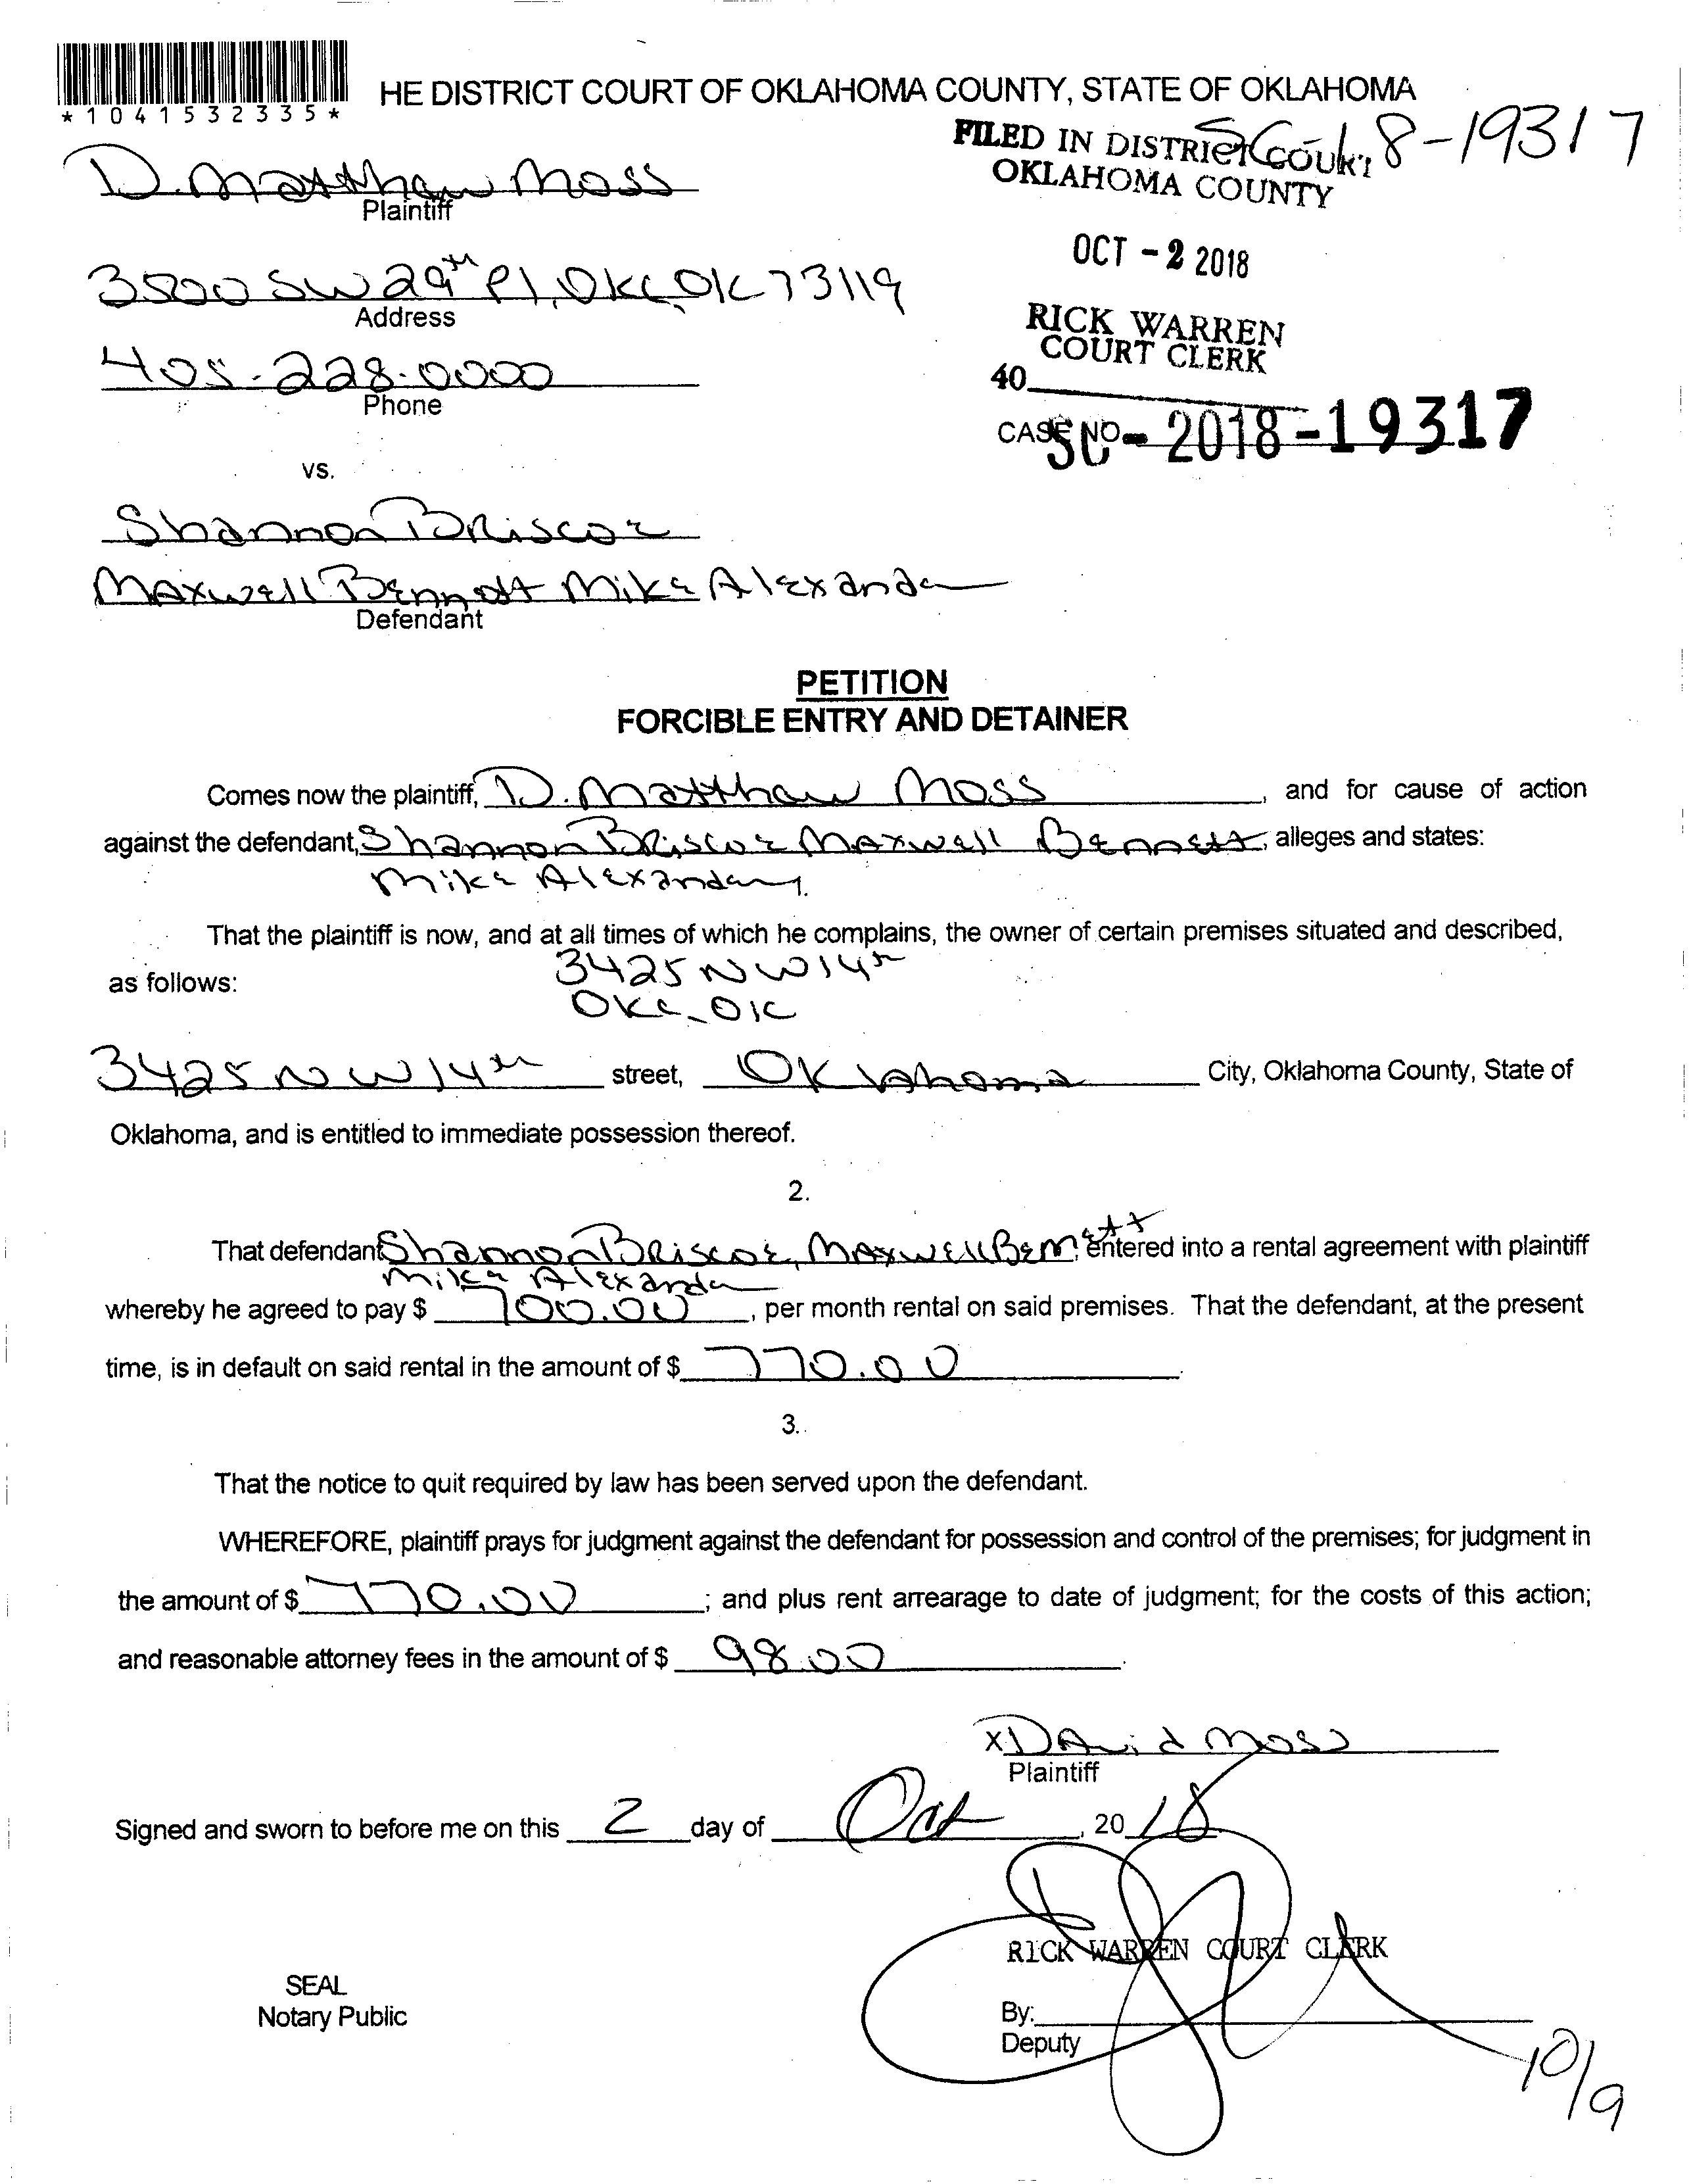 *1041532335*
HE DISTRICT COURT OF OKLAHOMA COUNTY, STATE OF OKLAHOMA
SC-18-19317
FILED IN DISTRICT COURT
OKLAHOMA COUNTY
D. Matthew Moss
Plaintiff
OCT - 2 2018
3500 SW 29th Pl, OKC, OK 73119
Address
RICK WARREN
COURT CLERK
405-228-0000
Phone
40
CASE NO.
SC - 2018 - 19317
vs.
Shannon Briscoe
Maxwell Bennett Mike Alexander
Defendant
PETITION
FORCIBLE ENTRY AND DETAINER
Comes now the plaintiff, D. Matthew Moss, and for cause of action
against the defendant, Shannon Briscoe Maxwell Bennett, alleges and states:
Mike Alexander
1.
That the plaintiff is now, and at all times of which he complains, the owner of certain premises situated and described,
as follows: 3425 NW 14th
OKC, OK
3425 NW 14th street, Oklahoma City, Oklahoma County, State of
Oklahoma, and is entitled to immediate possession thereof.
2.
That defendant Shannon Briscoe, Maxwell Bennett, entered into a rental agreement with plaintiff
Mike Alexander
whereby he agreed to pay $ 700.00, per month rental on said premises. That the defendant, at the present
time, is in default on said rental in the amount of $ 770.00.
3.
That the notice to quit required by law has been served upon the defendant.
WHEREFORE, plaintiff prays for judgment against the defendant for possession and control of the premises; for judgment in
the amount of $ 770.00; and plus rent arrearage to date of judgment; for the costs of this action;
and reasonable attorney fees in the amount of $ 98.00.
X David Moss
Plaintiff
Signed and sworn to before me on this 2 day of Oct, 2018.
RICK WARREN COURT CLERK
SEAL
Notary Public
By:
Deputy
10/9